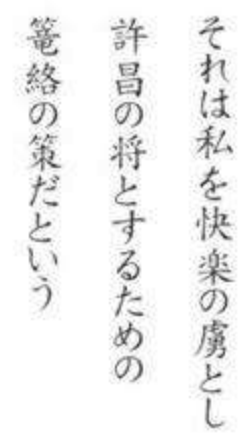 それは私を快楽の虜とし
許昌の将とするための
篭絡の策だという